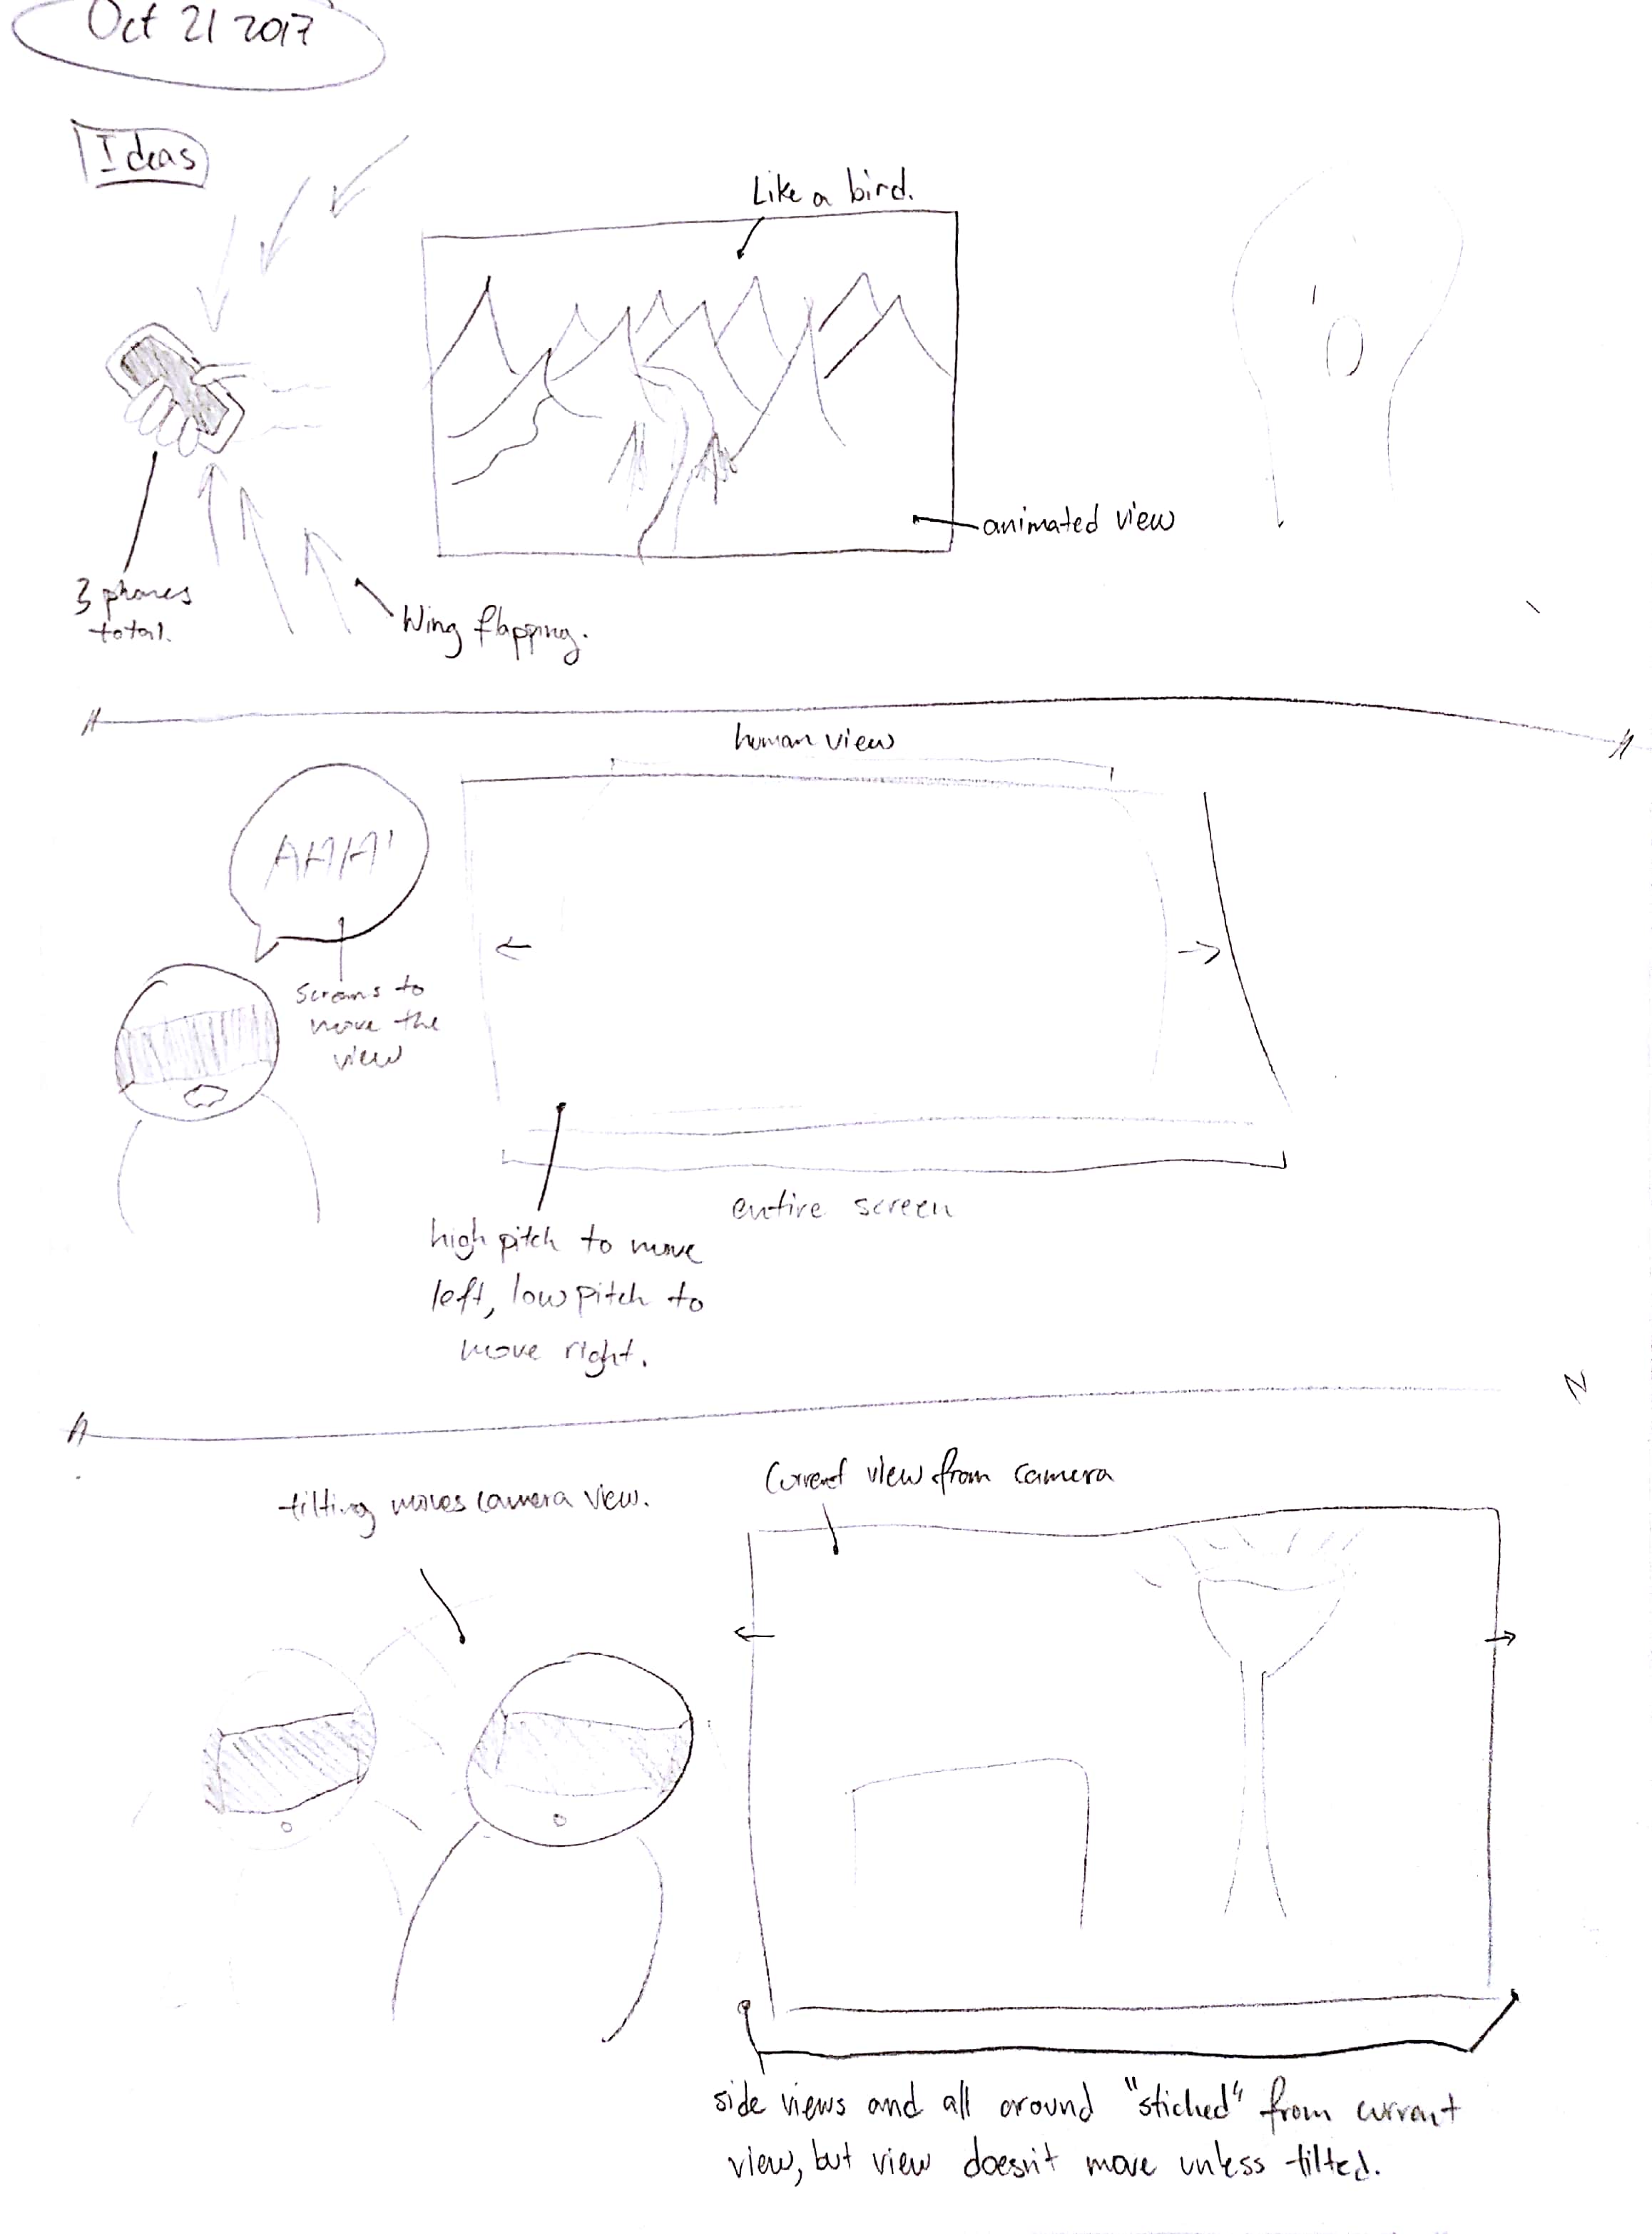 Oct 21 2017
Ideas
Like a bird.
animated view
3 phones
total.
Wing flapping.
human view
AHH!
screams to
move the
view
entire screen
high pitch to move
left, low pitch to
move right.
Current view from camera
tilting moves camera view.
side views and all around "stiched" from current
view, but view doesn't move unless tilted.